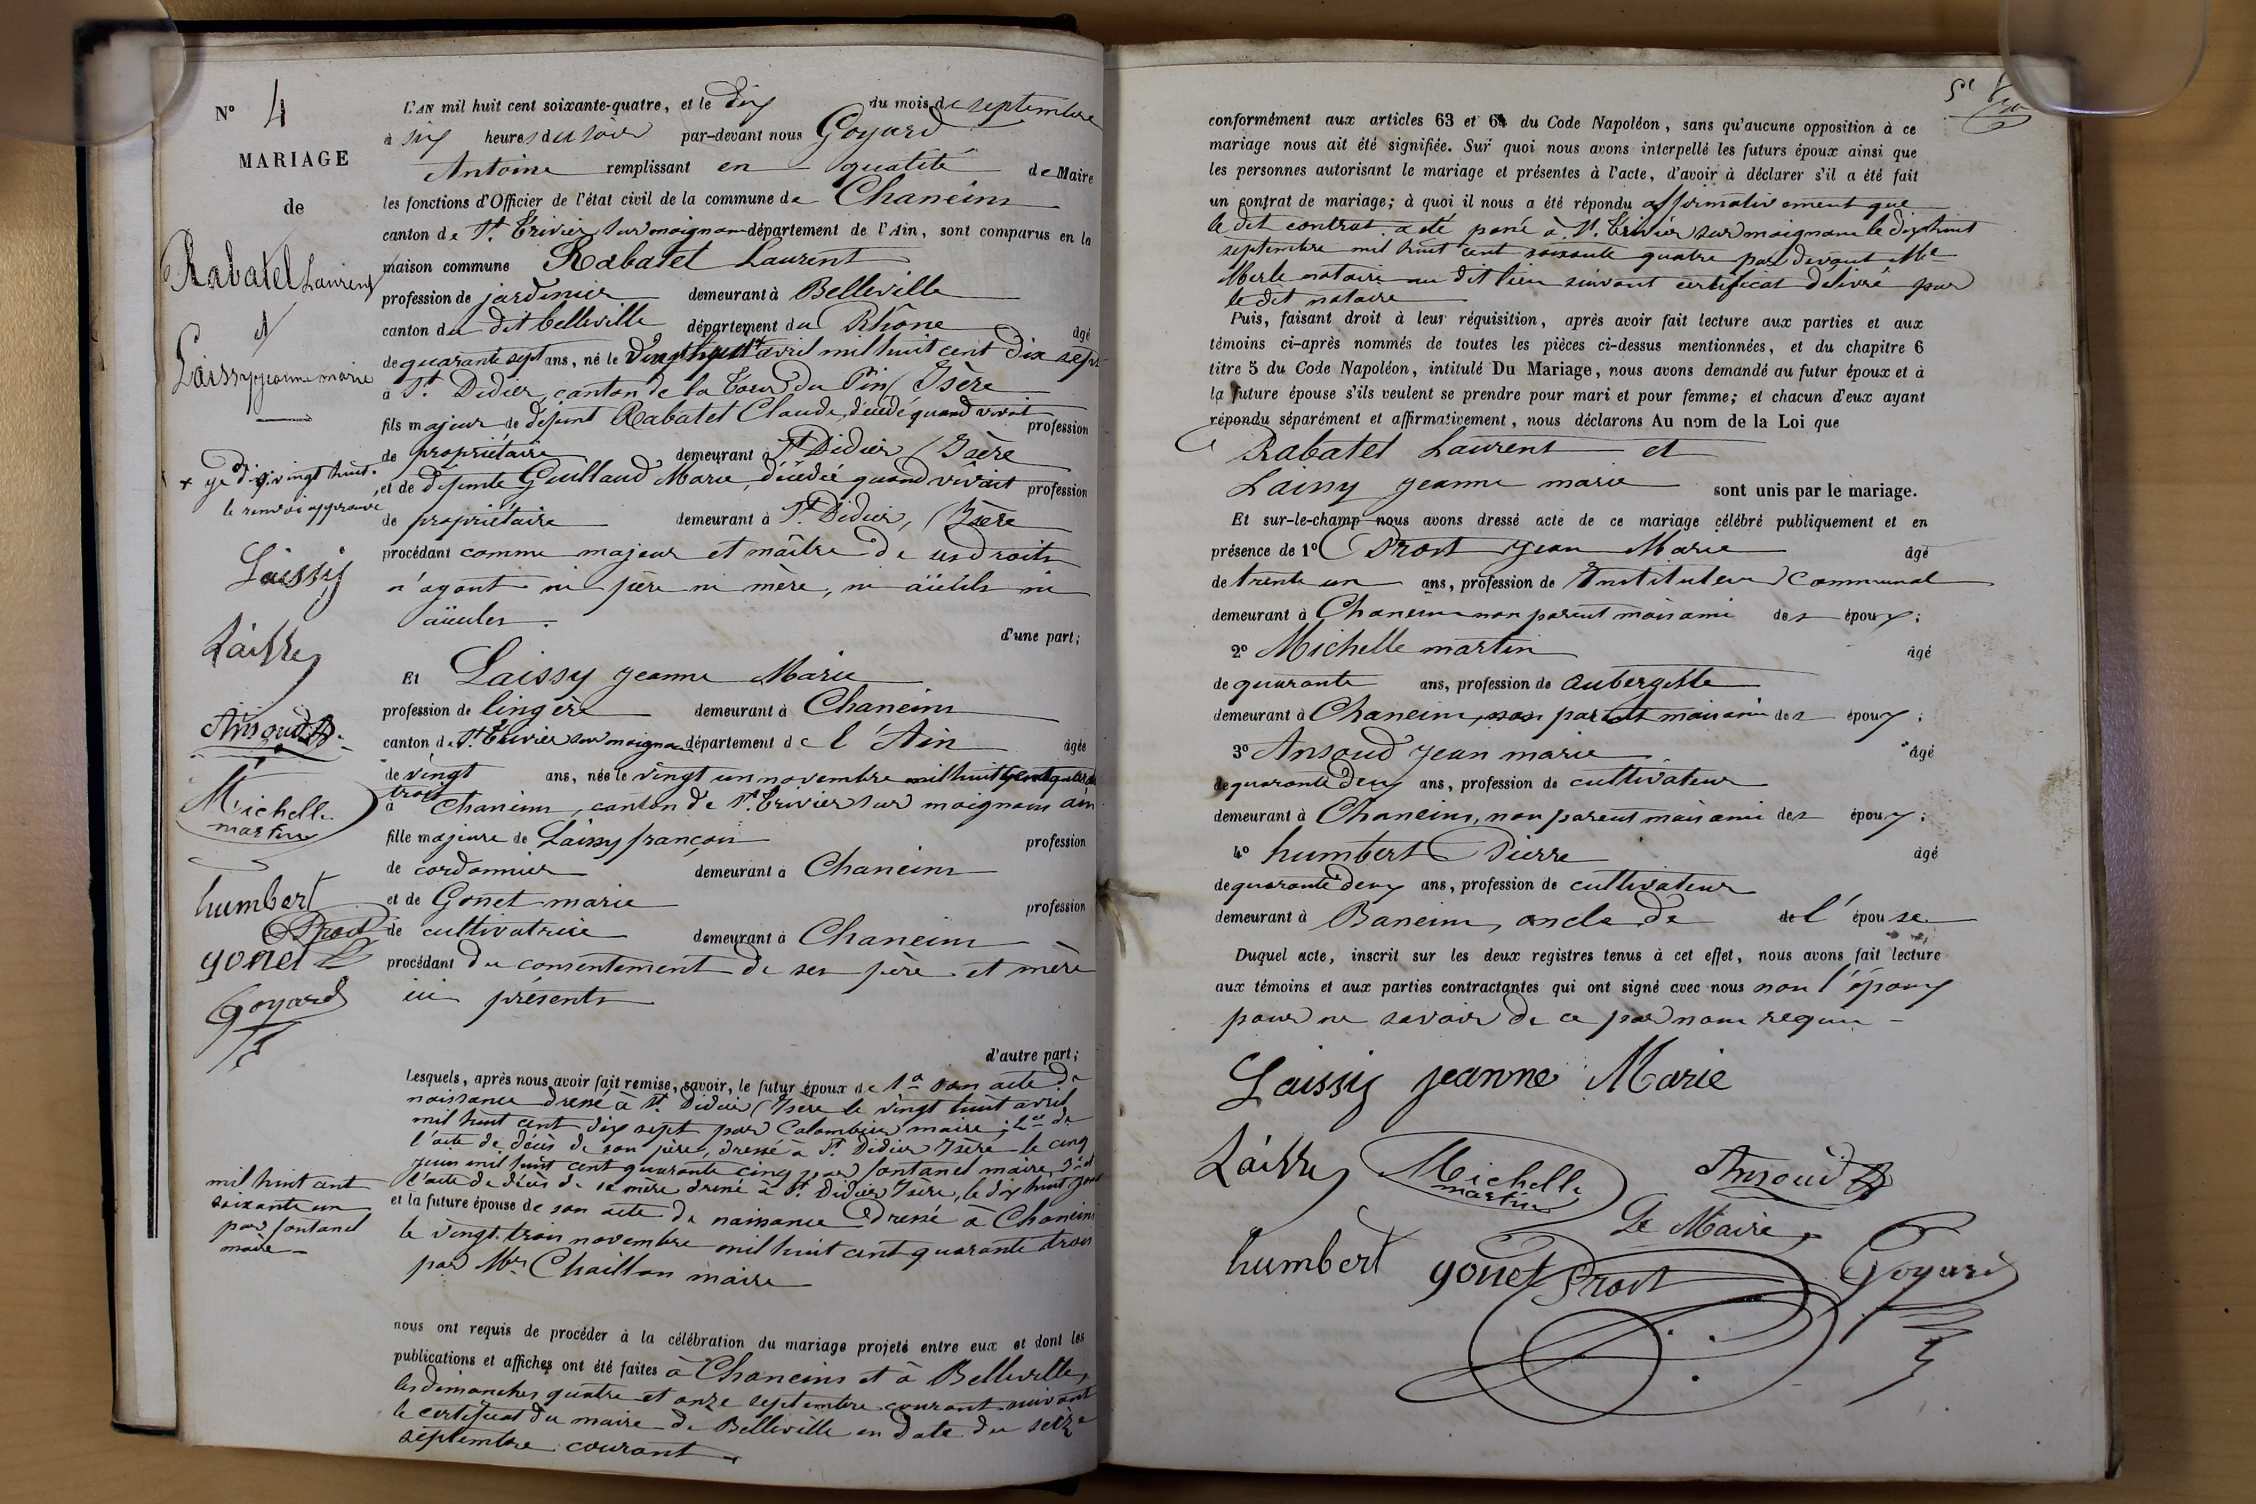 N° 4
MARIAGE
de
Rabatel Laurent
et
Laissy jeanne marie
L'AN mil huit cent soixante-quatre, et le dix du mois de septembre
à six heures du soir par-devant nous Goyard
Antoine remplissant en qualité de Maire
les fonctions d'Officier de l'état civil de la commune de Chaneins
canton de St. Trivier sur moignans département de l'Ain, sont comparus en la
maison commune Rabatel Laurent
profession de jardinier demeurant à Belleville
canton du dit belleville département du Rhône âgé
de quarante sept ans, né le vingt huit avril mil huit cent dix sept
à St. Didier, canton de la Tour du Pin, Isère
fils majeur de défunt Rabatel Claude, décédé quand vivait profession
de propriétaire demeurant à St Didier, Isère
et de défunte Guillaud Marie, décédée quand vivait profession
de propriétaire demeurant à St Didier, Isère
procédant comme majeur et maître de ses droits
n'ayant ni père ni mère, ni aïeuls ni
aïeules.
d'une part;
Et Laissy jeanne Marie
profession de lingère demeurant à Chaneins
canton de St. Trivier sur moignans département de l'Ain âgée
de vingt ans, née le vingt un novembre mil huit cent quarante
trois
à Chaneins, canton de St. Trivier sur moignans ain
fille majeure de Laissy françois profession
de cordonnier demeurant à Chaneins
et de Gonet marie profession
de cultivatrice demeurant à Chaneins
procédant du consentement de ses père et mère
ici présents
d'autre part;
Lesquels, après nous avoir fait remise, savoir, le futur époux de 1° son acte de
naissance dressé à St. Didier (Isère le vingt huit avril
mil huit cent dix sept par Colombier maire; 2° de
l'acte de décès de son père, dressé à St. Didier Isère le cinq
juin mil huit cent quarante cinq par fontanel maire, 3° et
l'acte de décès de sa mère dressé à St. Didier Isère, le dix huit
et la future épouse de son acte de naissance dressé à Chaneins
le vingt-trois novembre mil huit cent quarante trois
par Mr. Chaillon maire
nous ont requis de procéder à la célébration du mariage projeté entre eux et dont les
publications et affiches ont été faites à Chaneins et à Belleville,
les dimanches quatre et onze septembre courant suivant
le certificat du maire de Belleville en date du seize
septembre courant
vingt huit.
le renvoi approuvé
Laissy
Laissy
Ansoud
Michelle
martin
humbert
Prost
gonet
Goyard
mil huit cent
soixante un
par fontanel
maire
conformément aux articles 63 et 64 du Code Napoléon, sans qu'aucune opposition à ce
mariage nous ait été signifiée. Sur quoi nous avons interpellé les futurs époux ainsi que
les personnes autorisant le mariage et présentes à l'acte, d'avoir à déclarer s'il a été fait
un contrat de mariage; à quoi il nous a été répondu affirmativement que
le dit contrat a été passé à St. Trivier sur moignans le dix huit
septembre mil huit cent soixante quatre par devant Me
Merle notaire au dit lieu suivant certificat délivré par
le dit notaire
Puis, faisant droit à leur réquisition, après avoir fait lecture aux parties et aux
témoins ci-après nommés de toutes les pièces ci-dessus mentionnées, et du chapitre 6
titre 5 du Code Napoléon, intitulé Du Mariage, nous avons demandé au futur époux et à
la future épouse s'ils veulent se prendre pour mari et pour femme; et chacun d'eux ayant
répondu séparément et affirmativement, nous déclarons Au nom de la Loi que
Rabatel Laurent et
Laissy jeanne marie sont unis par le mariage.
Et sur-le-champ nous avons dressé acte de ce mariage célébré publiquement et en
présence de 1° Prost Jean Marie âgé
de trente un ans, profession de Instituteur Communal
demeurant à Chaneins non parent mais ami des époux;
2° Michelle martin âgé
de quarante ans, profession de aubergiste
demeurant à Chaneins, non parent mais ami des époux;
3° Ansoud Jean marie âgé
de quarante deux ans, profession de cultivateur
demeurant à Chaneins, non parent mais ami des époux;
4° humbert Pierre âgé
de quarante deux ans, profession de cultivateur
demeurant à Baneins, oncle de de l'épouse
Duquel acte, inscrit sur les deux registres tenus à cet effet, nous avons fait lecture
aux témoins et aux parties contractantes qui ont signé avec nous non l'époux
pour ne savoir de ce par nous requis
Laissy jeanne Marie
Laissy Michelle martin Ansoud
Le Maire
humbert gonet Prost Goyard